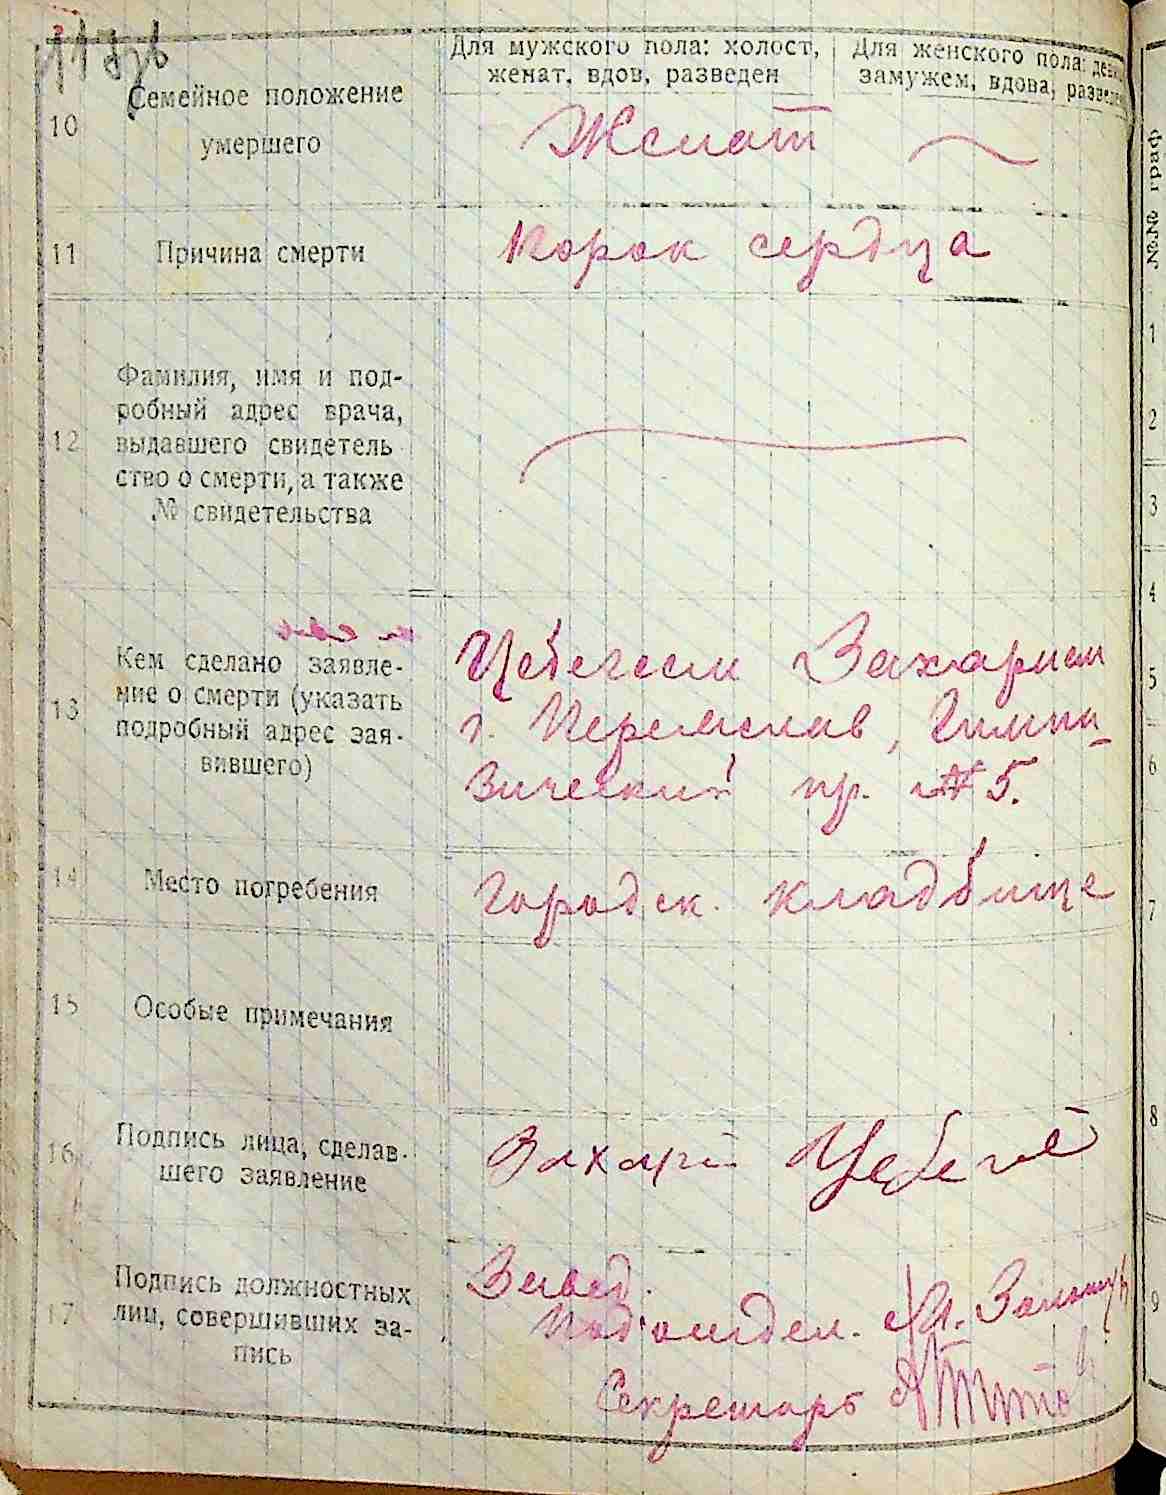 Для мужского пола: холост, женат, вдов, разведен
Для женского пола: замужем, вдова,
10
Семейное положение умершего
Женат
11
Причина смерти
Порок сердца
12
Фамилия, имя и под-
робный адрес врача,
выдавшего свидетель
ство о смерти, а также
№ свидетельства
13
Кем сделано заявле-
ние о смерти (указать
подробный адрес зая-
вившего)
Цебегеем Захарием
г. Переяслав, Гимна-
зический пр. № 5.
14
Место погребения
Городск. кладбище
15
Особые примечания
16
Подпись лица, сделав-
шего заявление
Захарій Цебегей
17
Подпись должностных
лиц, совершивших за-
пись
Завед.
Подотдел.
Секретарь
№№ граф
1
2
3
4
5
6
7
8
9